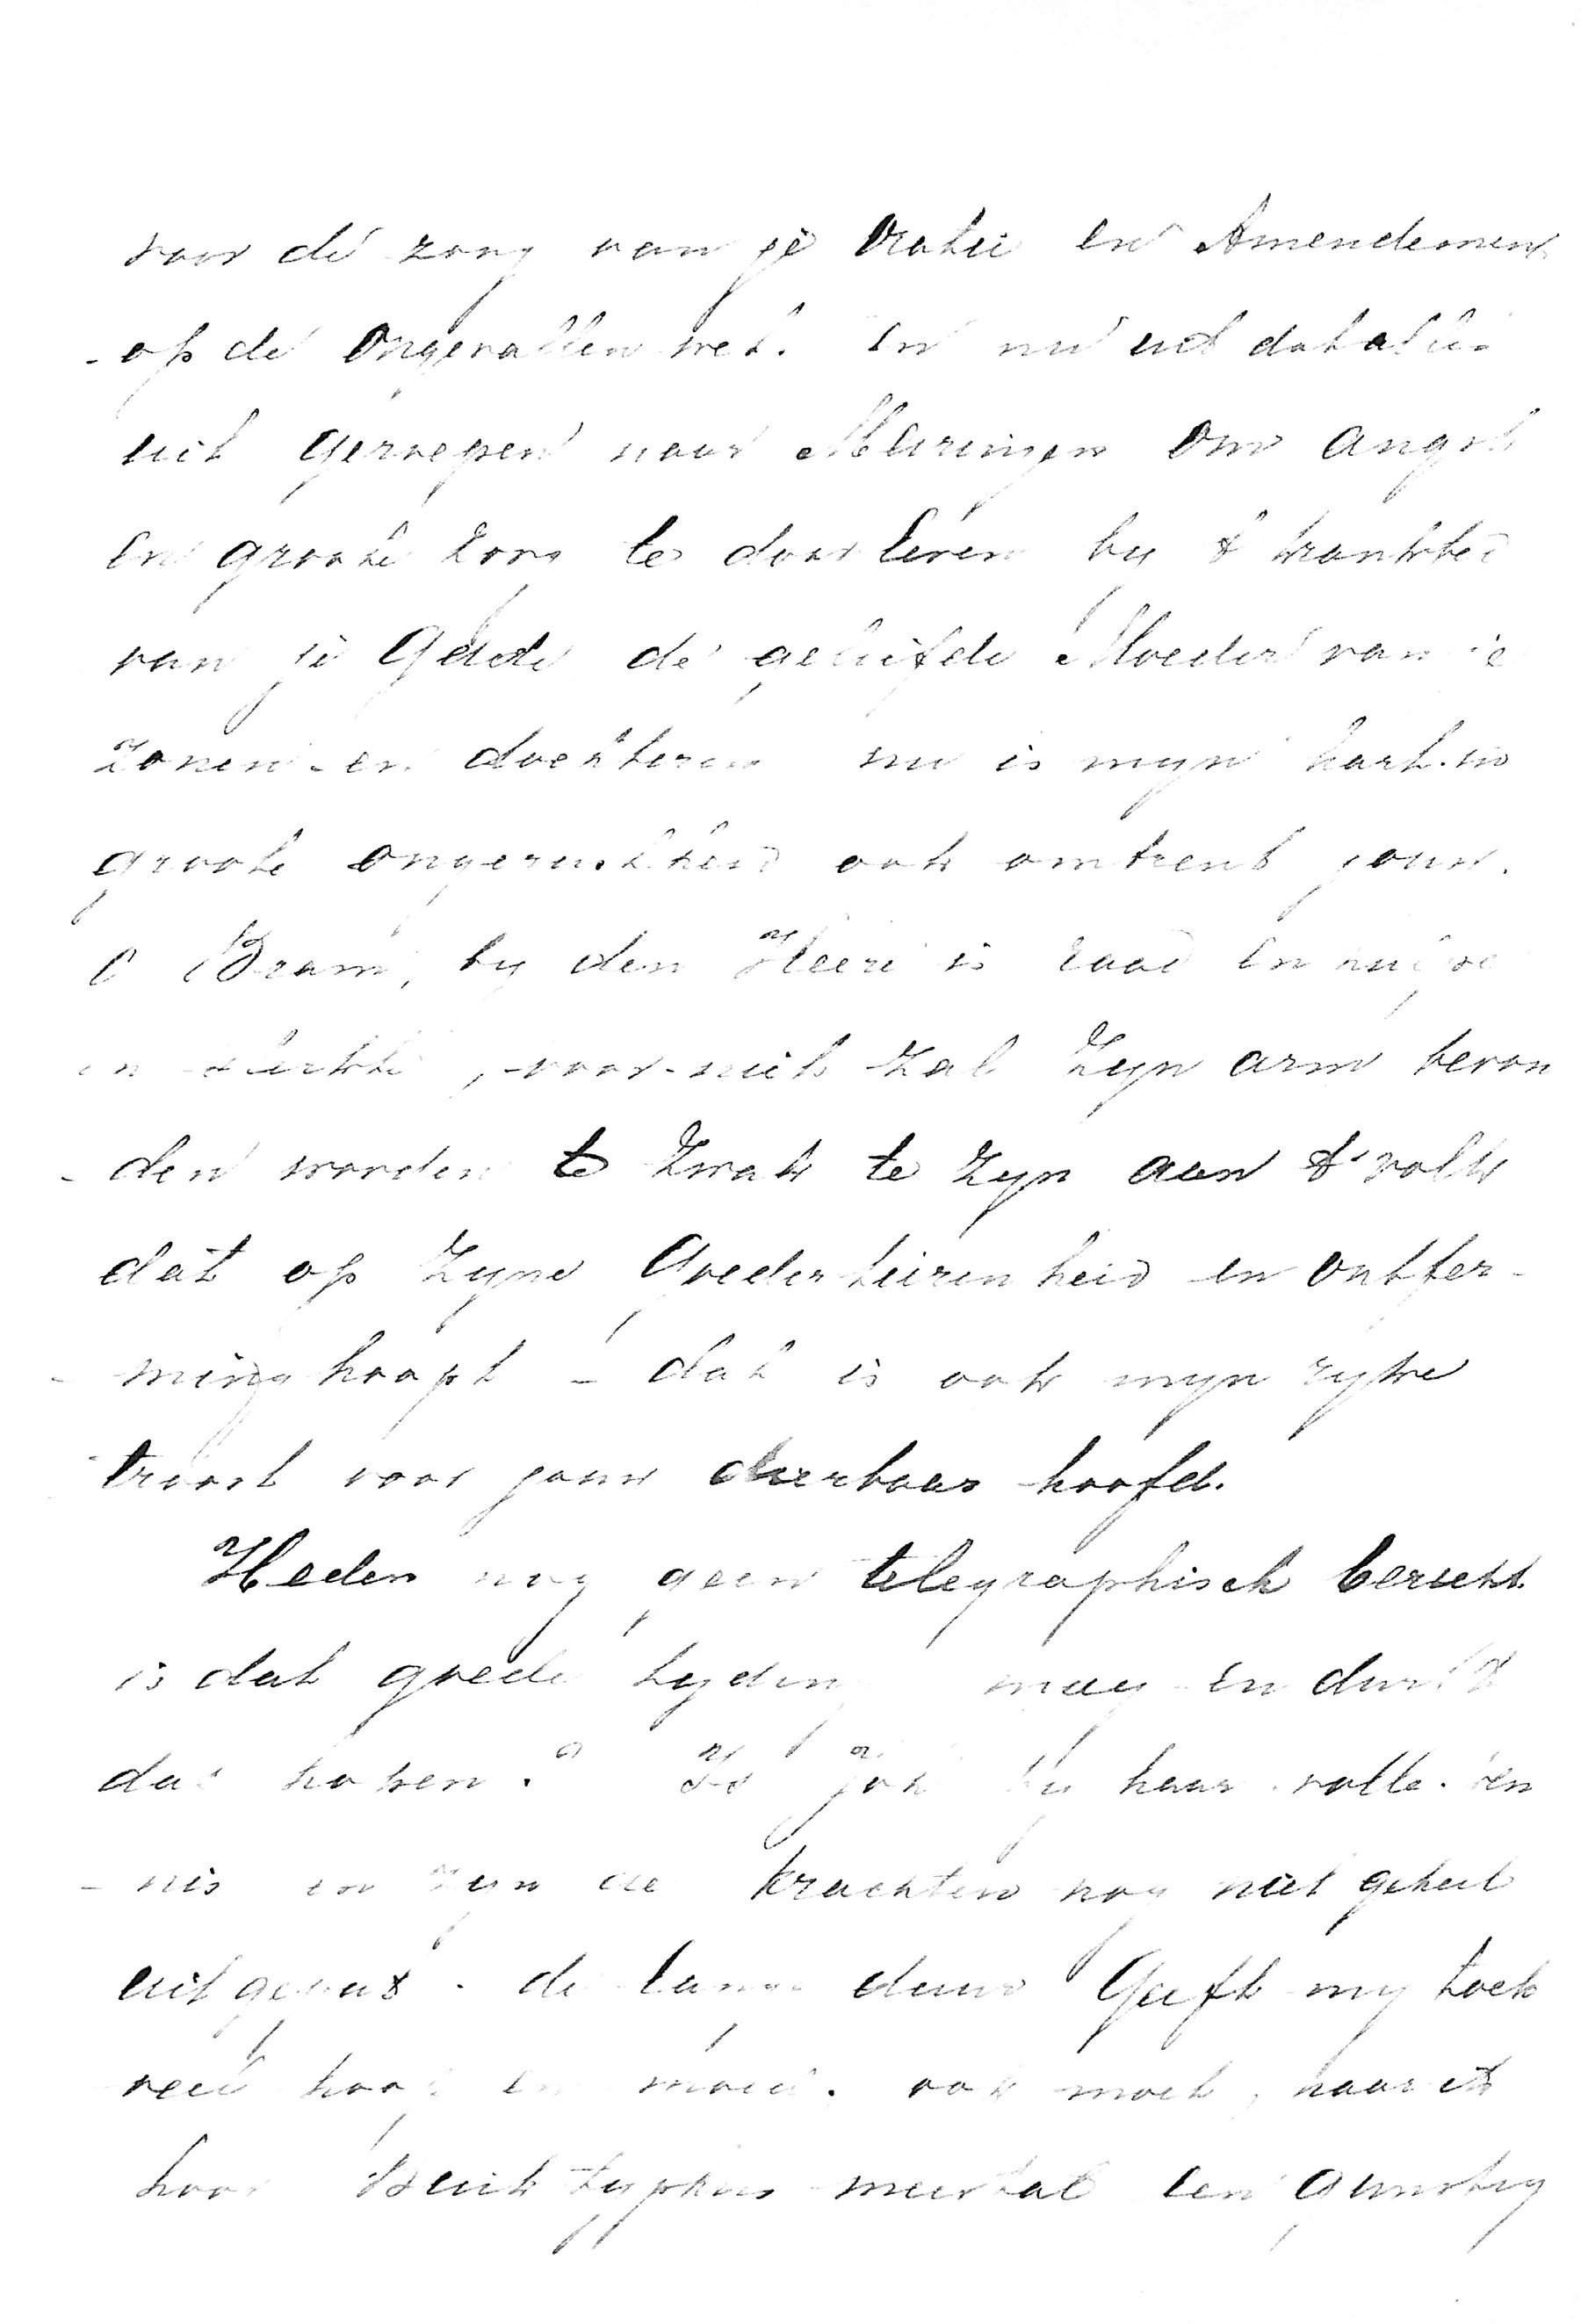 voor de zorg van je Oratie en Amendement
- op de Ongevallen wet. En nu uit dat alles
uit geroepen naar Meiringen om angst
en groote zorg te doorleven by 't krankbed
van je Gade de geliefde Moeder van je
Zonen en dochteren nu is myn hart in
groote ongerustheid ook omtrent jouw.
O Bram, by den Heere is raad en hulpe
en sterkte, voor niet zal Zyn arm bevon
- den worden te Zwak te zyn aan 't volk
dat op Zyne Goedertierenheid en ontfer-
- ming hoopt - dat is ook myn ryke
troost voor jouw dierbaar hoofd.
Heden nog geen telegraphisch bericht.
is dat goede tyding mag en durf ik
dat hopen? Is Jo by haar volle ken
- nis en zyn de krachten nog niet geheel
uitgeput. de lange duur Geeft my toch
veel hoop en moed. ook moet, naar ik
hoor Buik typhus meestal een gunstig